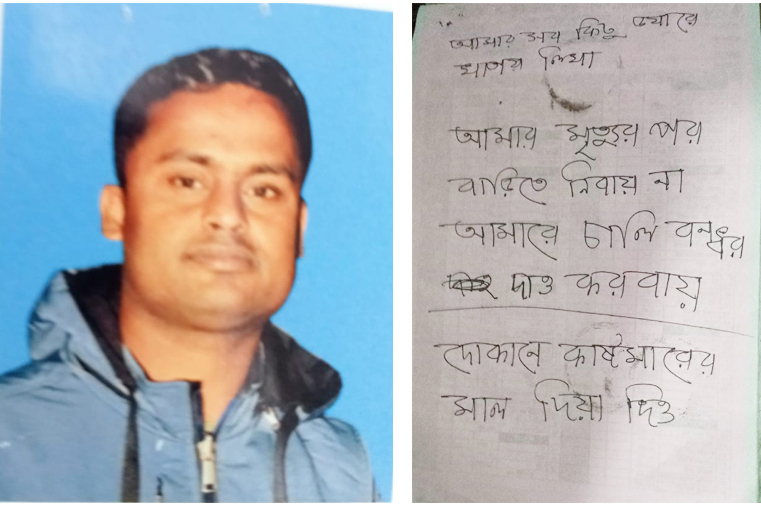 আমার সব কিছু
খাপয় লিখা
আমার মৃত্যুর পর
বাড়িতে নিবায় না
আমারে চালি বন্দর
দাও করবায়
দোকানে কাষ্টমারের
মাল দিয়া দিও